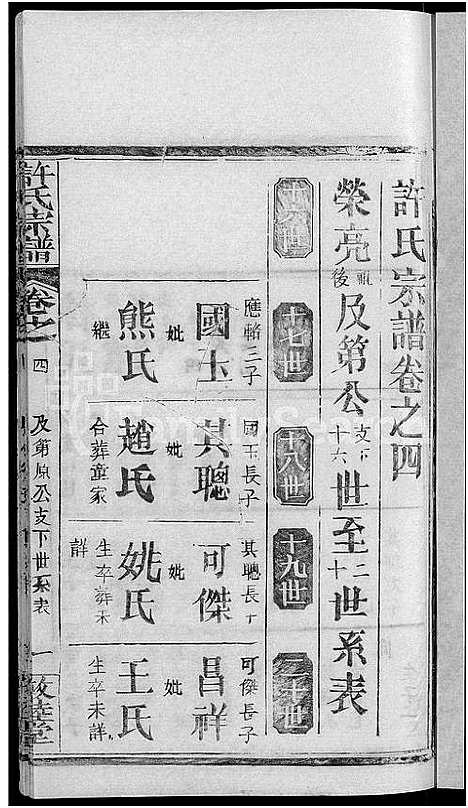 許氏宗譜卷之四
榮亮後及第公支下十六世至二十世系表
十六世
十七世
十八世
十九世
二十世
應輅三子
國玉
妣
熊氏
繼
國玉長子
其聰
妣
趙氏
合葬童家
其聰長子
可傑
妣
姚氏
生卒葬未
詳
可傑長子
昌祥
妣
王氏
生卒未詳
許氏宗譜
卷之
四
及第原公支下世系表
一
敦睦堂